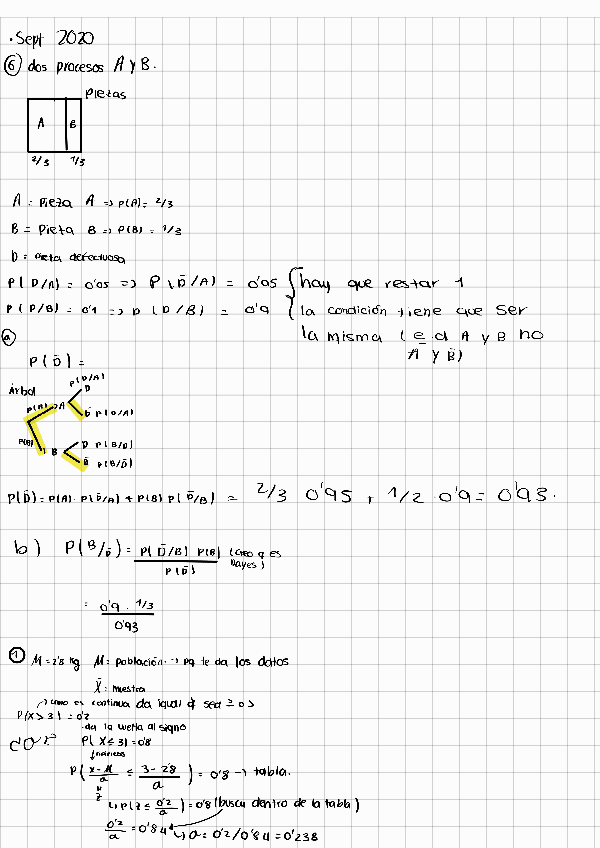 · Sept 2020
⑥ dos procesos A y B.
Piezas
A B
2/3 1/3
A = Pieza A => P(A) = 2/3
B = Pieza B => P(B) = 1/3
D = Pieza defectuosa
P(D/A) = 0'05 => P(D̄/A) = 0'05 { hay que restar 1
P(D/B) = 0'1 => P(D/B) = 0'9 { la condición tiene que ser
la misma (e.d A y B no
Ā y B̄)
ⓐ
P(D̄) =
Árbol
P(D/A)
P(A) A D
D̄ P(D/A)
P(B) B D P(B/D)
D̄ P(B/D̄)
P(D̄) = P(A) · P(D̄/A) + P(B) P(D̄/B) = 2/3 0'95 + 1/2 0'9 = 0'93.
b) P(B/D̄) = P(D̄/B) P(B) (creo q es
P(D̄) Bayes)
= 0'9 · 1/3
0'93
① M = 2'8 kg M: población -> pq te da los datos
X̄: muestra
como es continua da igual q sea ≥ o >
P(X > 3) = 0'2
da la vuelta al signo
σ? P(X ≤ 3) = 0'8
P(x-M/σ ≤ 3-2'8/σ) = 0'8 -> tabla.
z
↳ P(z ≤ 0'2/σ) = 0'8 (busca dentro de la tabla)
0'2/σ = 0'84 ↳ σ = 0'2/0'84 = 0'238